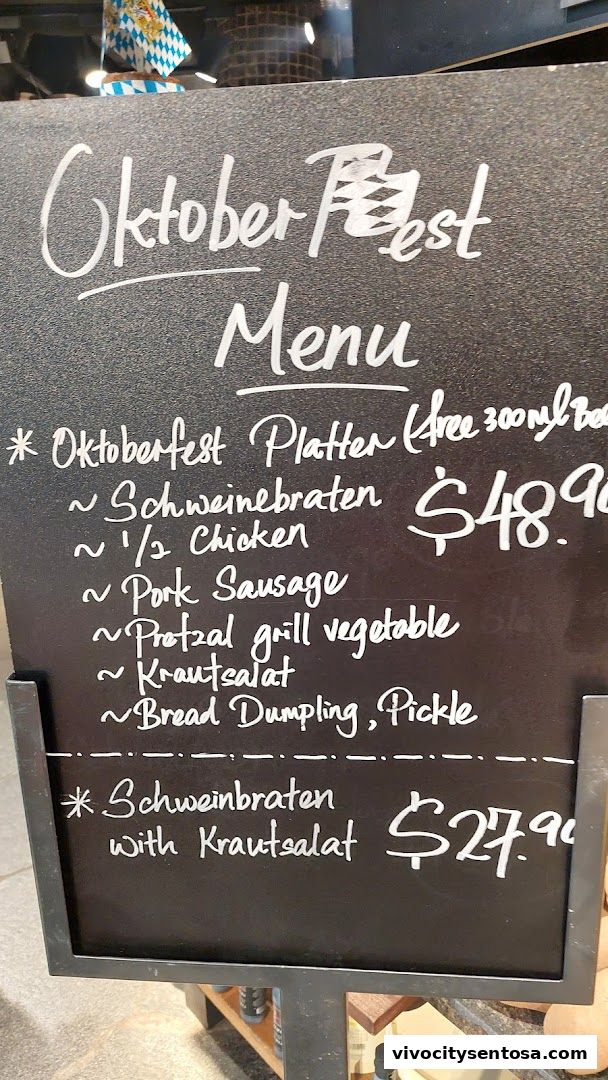 OktoberFest
Menu
* Oktoberfest Platter (free 300ml Bee
~ Schweinebraten $48.90
~ 1/2 Chicken
~ Pork Sausage
~ Pretzal grill vegetable
~ Krautsalat
~ Bread Dumpling, Pickle
* Schweinbraten
with Krautsalat $27.90
vivocitysentosa.com